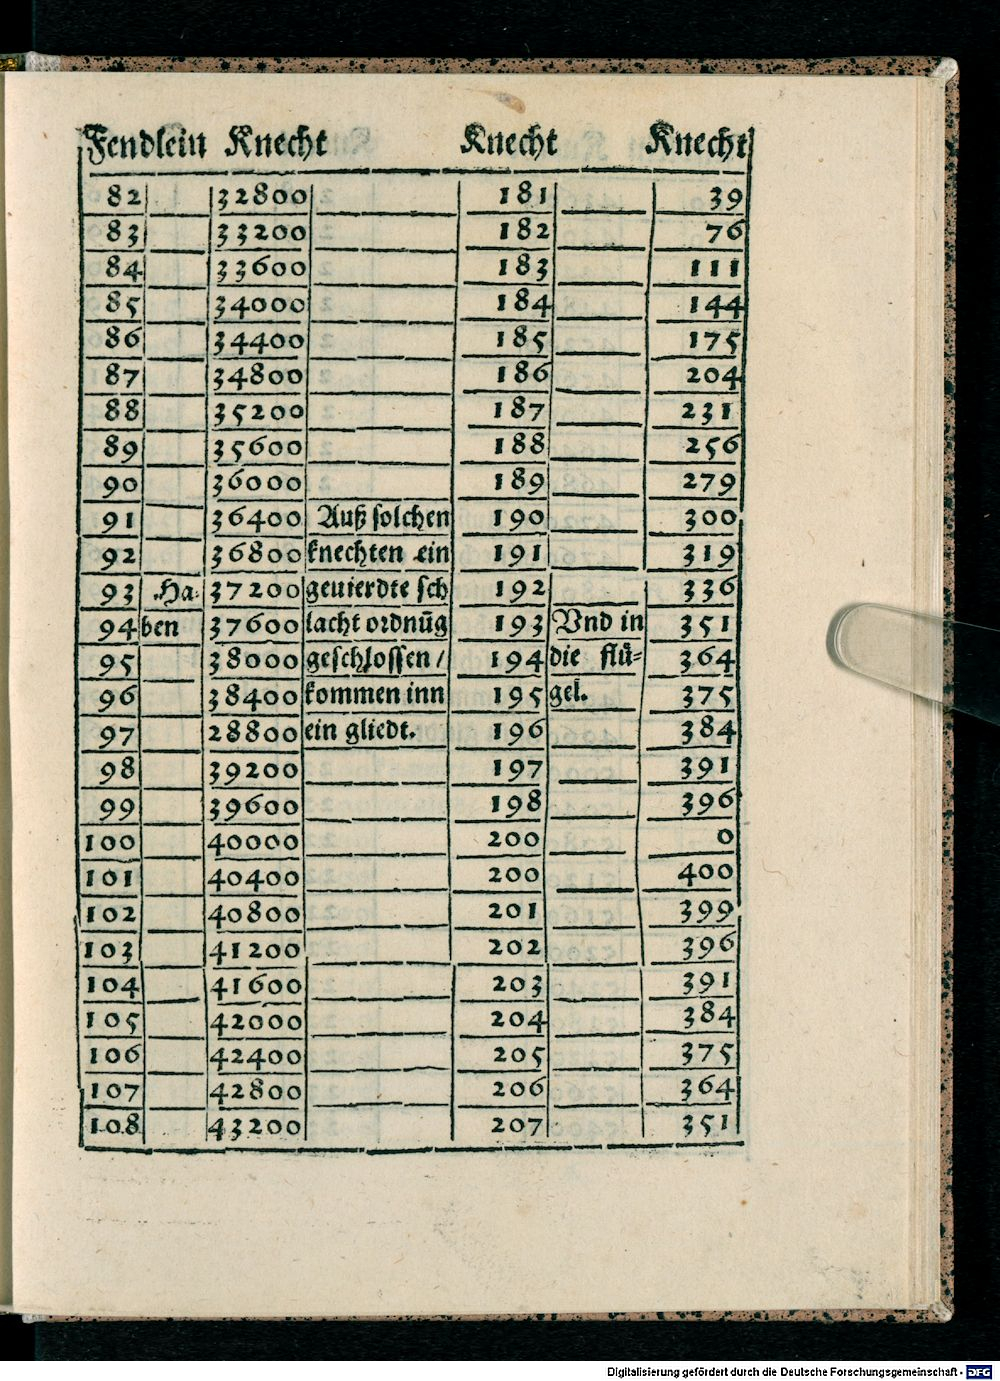 Fendlein Knecht Knecht Knecht
82 32800 181 39
83 33200 182 76
84 33600 183 111
85 34000 184 144
86 34400 185 175
87 34800 186 204
88 35200 187 231
89 35600 188 256
90 36000 189 279
91 36400 Auß solchen 190 300
92 36800 knechten ein 191 319
93 Ha- 37200 geuierdte sch 192 336
94 ben 37600 lacht ordnūg 193 Vnd in 351
95 38000 geschlossen / 194 die flü- 364
96 38400 kommen inn 195 gel. 375
97 28800 ein gliedt. 196 384
98 39200 197 391
99 39600 198 396
100 40000 200 0
101 40400 200 400
102 40800 201 399
103 41200 202 396
104 41600 203 391
105 42000 204 384
106 42400 205 375
107 42800 206 364
108 43200 207 351
Digitalisierung gefördert durch die Deutsche Forschungsgemeinschaft - DFG